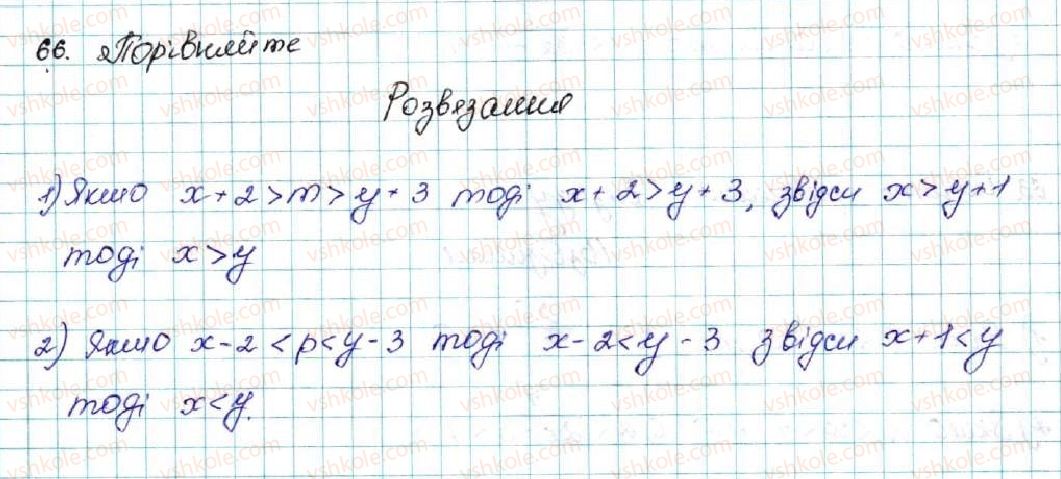 66. Порівняйте
Розвязання
1) Якшо x + 2 > m > y + 3 тоді x + 2 > y + 3, звідси x > y + 1
тоді x > y
2) Якшо x - 2 < p < y - 3 тоді x - 2 < y - 3 звідси x + 1 < y
тоді x < y.